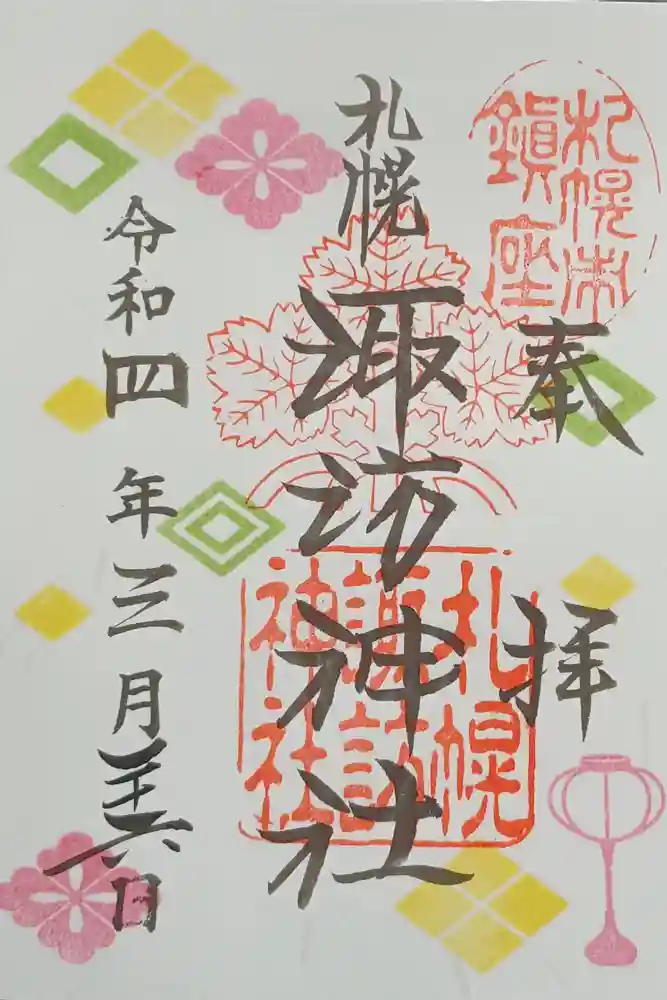 札幌市
鎮座
奉拝
札幌
諏訪神社
札幌
諏訪
神社
令和四年三月二十六日